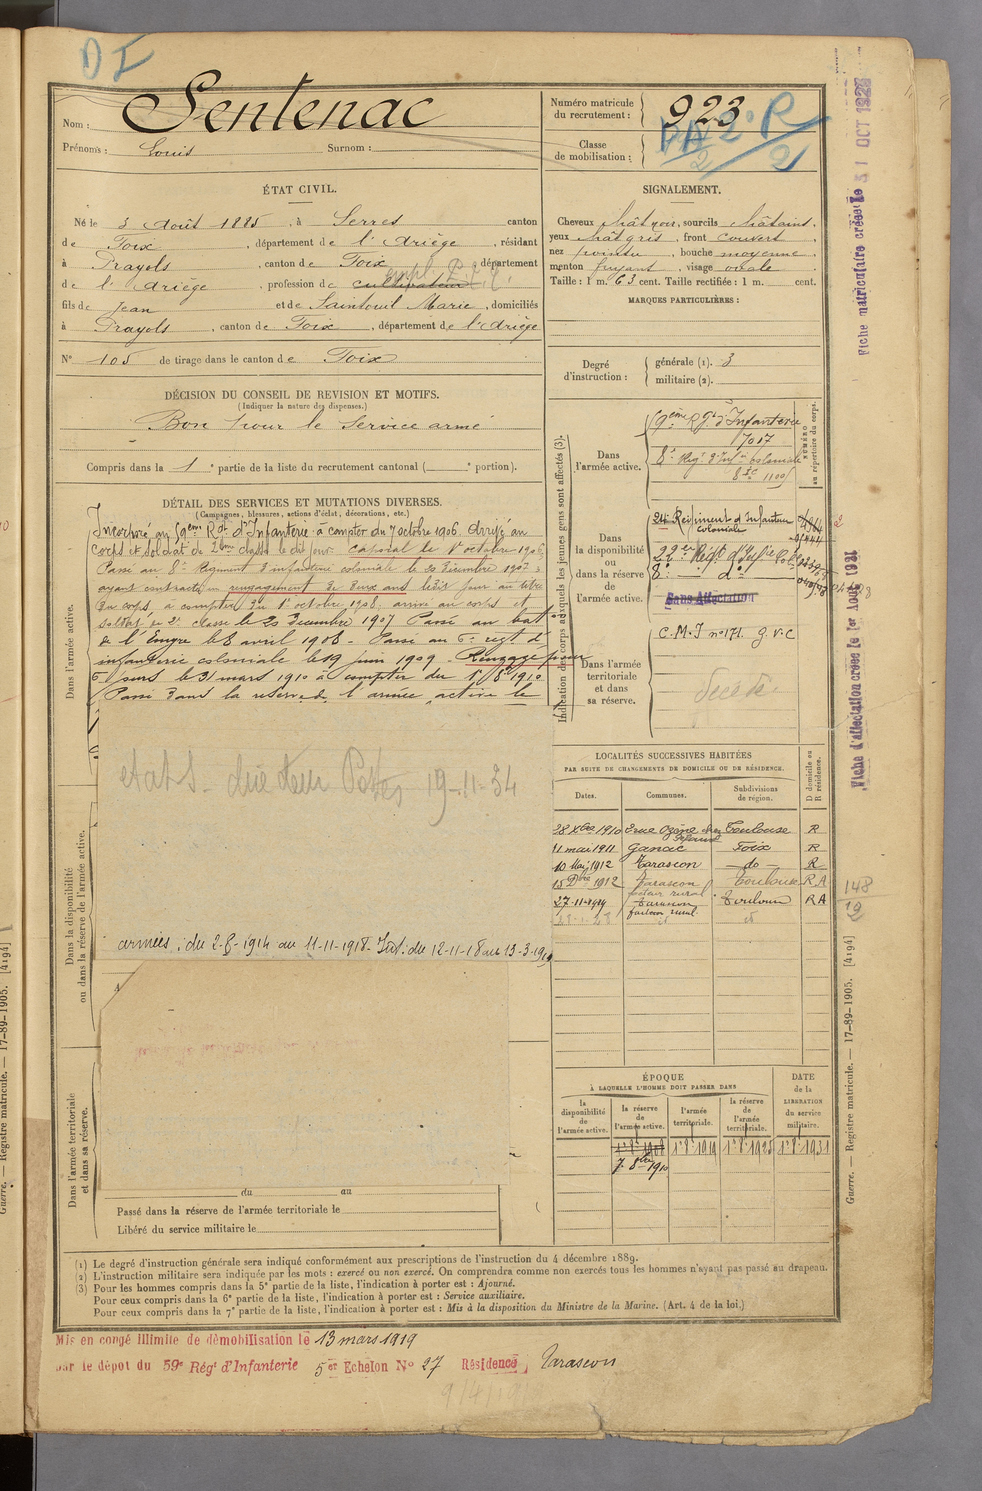 DI
Nom : Sentenac
Prénoms : Louis Surnom :
Numéro matricule du recrutement : 923
Classe de mobilisation :
ÉTAT CIVIL.
Né le 3 Août 1885, à Serres canton
de Foix, département de l'Ariège, résidant
à Prayols, canton de Foix, département
de l'Ariège, profession de cultivateur
fils de Jean et de Saintouil Marie, domiciliés
à Prayols, canton de Foix, département de l'Ariège
N° 105 de tirage dans le canton de Foix
DÉCISION DU CONSEIL DE REVISION ET MOTIFS.
(Indiquer la nature des dispenses.)
Bon pour le Service armé
Compris dans la 1e partie de la liste du recrutement cantonal ( e portion).
SIGNALEMENT.
Cheveux chât noir, sourcils châtains,
yeux chât gris, front couvert,
nez pointu, bouche moyenne,
menton fuyant, visage ovale.
Taille : 1 m. 63 cent. Taille rectifiée : 1 m. cent.
MARQUES PARTICULIÈRES :
Degré d'instruction : générale (1). 3
militaire (2).
DÉTAIL DES SERVICES ET MUTATIONS DIVERSES.
(Campagnes, blessures, actions d'éclat, décorations, etc.)
Incorporé au 59ème Rgt d'Infanterie à compter du 7 octobre 1906. Arrivé au
corps et soldat de 2ème classe le dit jour. Caporal le
Passé au 8e Régiment d'infanterie coloniale le 20 décembre 1907
ayant contracté un rengagement de deux ans ledit jour au titre
du corps, à compter du 1er octobre 1908, arrivé au corps et
soldat de 2e classe le 20 Décembre 1907 Passé au bat on
de l'Emyrne le 8 avril 1908 - Passé au 6e régt d'
infanterie coloniale le 19 juin 1909 - Rengagé pour
6 jours le 31 mars 1910 à compter du 1er 8bre 1910
Passé dans la réserve de l'armée active le
etats - Postes 19-11-34
armées : du 2-8-1914 au 11-11-1918 - Int. du 12-11-18 au 13-3-1919
A
Dans l'armée active.
Dans la disponibilité ou dans la réserve de l'armée active.
Dans l'armée territoriale et dans sa réserve.
du au
Passé dans la réserve de l'armée territoriale le
Libéré du service militaire le
Indication des corps auxquels les jeunes gens sont affectés (3).
NUMÉRO au répertoire du corps.
Dans l'armée active.
59ème Rgt d'Infanterie
7017
8e Régt d'Infie Coloniale
Dans la disponibilité ou dans la réserve de l'armée active.
24e Régiment d'Infanterie
coloniale
22e Régt d'Infie Colle
8e do
Sans Affectation
Dans l'armée territoriale et dans sa réserve.
C.M.I n° 171. G.V.C
décédé
LOCALITÉS SUCCESSIVES HABITÉES
PAR SUITE DE CHANGEMENTS DE DOMICILE OU DE RÉSIDENCE.
Dates. Communes. Subdivisions de région. D domicile ou R résidence.
28 Xbre 1910 rue Ozène Toulouse R
11 mai 1911 Ganac Foix R
10 Mai 1912 Tarascon do R
15 Dbre 1912 Tarascon facteur rural Toulouse R.A
27-11-1914 Tarascon facteur rural Toulouse R A
ÉPOQUE
À LAQUELLE L'HOMME DOIT PASSER DANS
DATE de la LIBÉRATION du service militaire.
la disponibilité de l'armée active. la réserve de l'armée active. l'armée territoriale. la réserve de l'armée territoriale.
1er 8bre 1908 1er 8bre 1919 1er 8bre 1925 1er 8bre 1931
7 8bre 1910
(1) Le degré d'instruction générale sera indiqué conformément aux prescriptions de l'instruction du 4 décembre 1889.
(2) L'instruction militaire sera indiquée par les mots : exercé ou non exercé. On comprendra comme non exercés tous les hommes n'ayant pas passé au drapeau.
(3) Pour les hommes compris dans la 5e partie de la liste, l'indication à porter est : Ajourné.
Pour ceux compris dans la 6e partie de la liste, l'indication à porter est : Service auxiliaire.
Pour ceux compris dans la 7e partie de la liste, l'indication à porter est : Mis à la disposition du Ministre de la Marine. (Art. 4 de la loi.)
Mis en congé illimité de démobilisation le 13 mars 1919
par le dépôt du 59e Régt d'Infanterie 5er Echelon N° 27 Résidence, Tarascon
Fiche matriculaire créée le 31 OCT 1928
Fiche d'affectation créée le 1er Août 1931
148
19
Guerre. — Registre matricule. — 17-89-1905. [4194]
Guerre. — Registre matricule. — 17-89-1905. [4194]